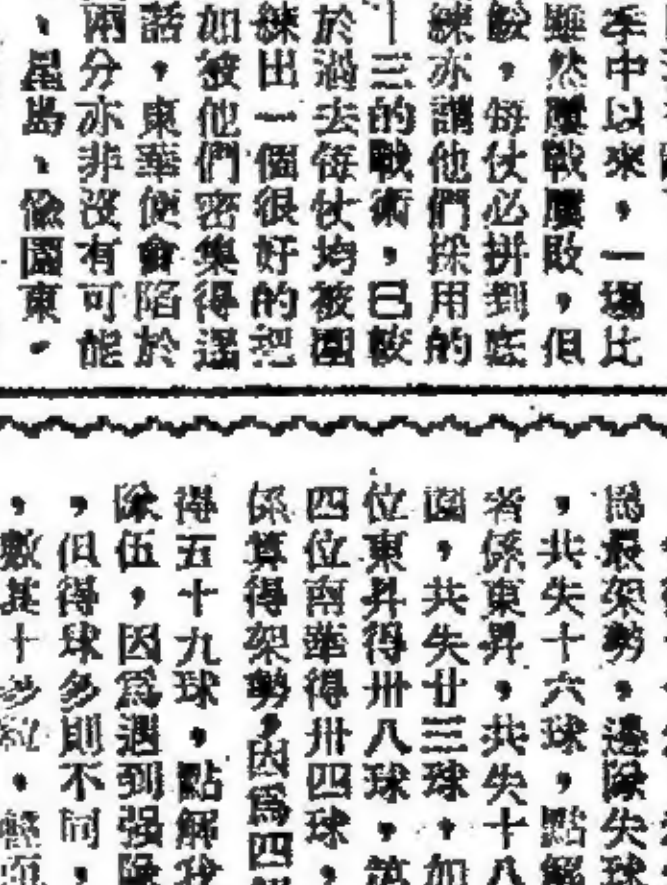 季中以來，一場比
雖然屢戰屢敗，但
骹，每仗必拼到底
練亦謂他們採用的
十三的戰術，已較
於過去每仗均被圍
練出一個很好的把
加被他們密集得逞
話，東華便會陷於
兩分亦非沒有可能
、星島、儉園東。
爲最架勢，邊隊失球
，共失十六球，點解
者係東昇，共失十八
園，共失廿三球，加
位東昇得卅八球，
四位南華得卅四球，
係算得架勢，因爲四
得五十九球，點解我
隊伍，因爲遇到强隊
，但得球多則不同，
，數其十多